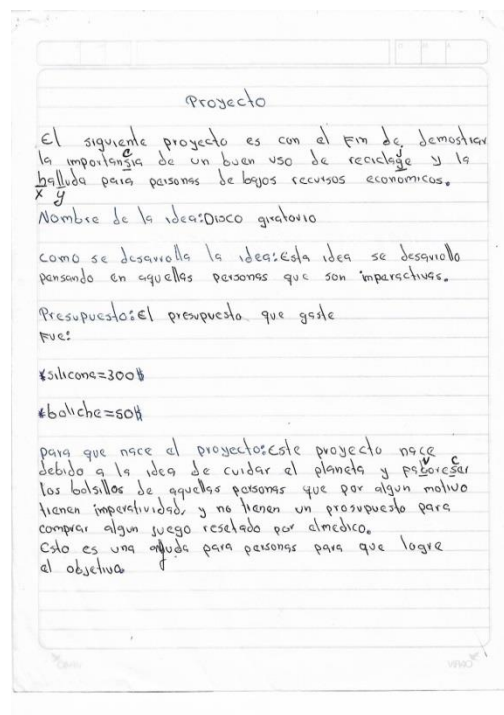 Proyecto
El siguiente proyecto es con el fin de, demostrar
c
la importansia de un buen uso de reciclage y la
hallluda para personas de bajos recursos economicos.
x y
Nombre de la idea: Disco giratorio
como se desarrolla la idea: Esta idea se desarrollo
pensando en aquellas personas que son imperactivas.
Presupuesto: El presupuesto que gaste
Fue:
*silicona=300₡
*boliche=50₡
para que nace el proyecto: Este proyecto nace
v c
debido a la idea de cuidar el planeta y paboresar
los bolsillos de aquellas personas que por algun motivo
tienen imperatividad, y no tienen un prosupuesto para
comprar algun juego resetado por elmedico.
Esto es una ayuda para personas para que logre
el objetivo.